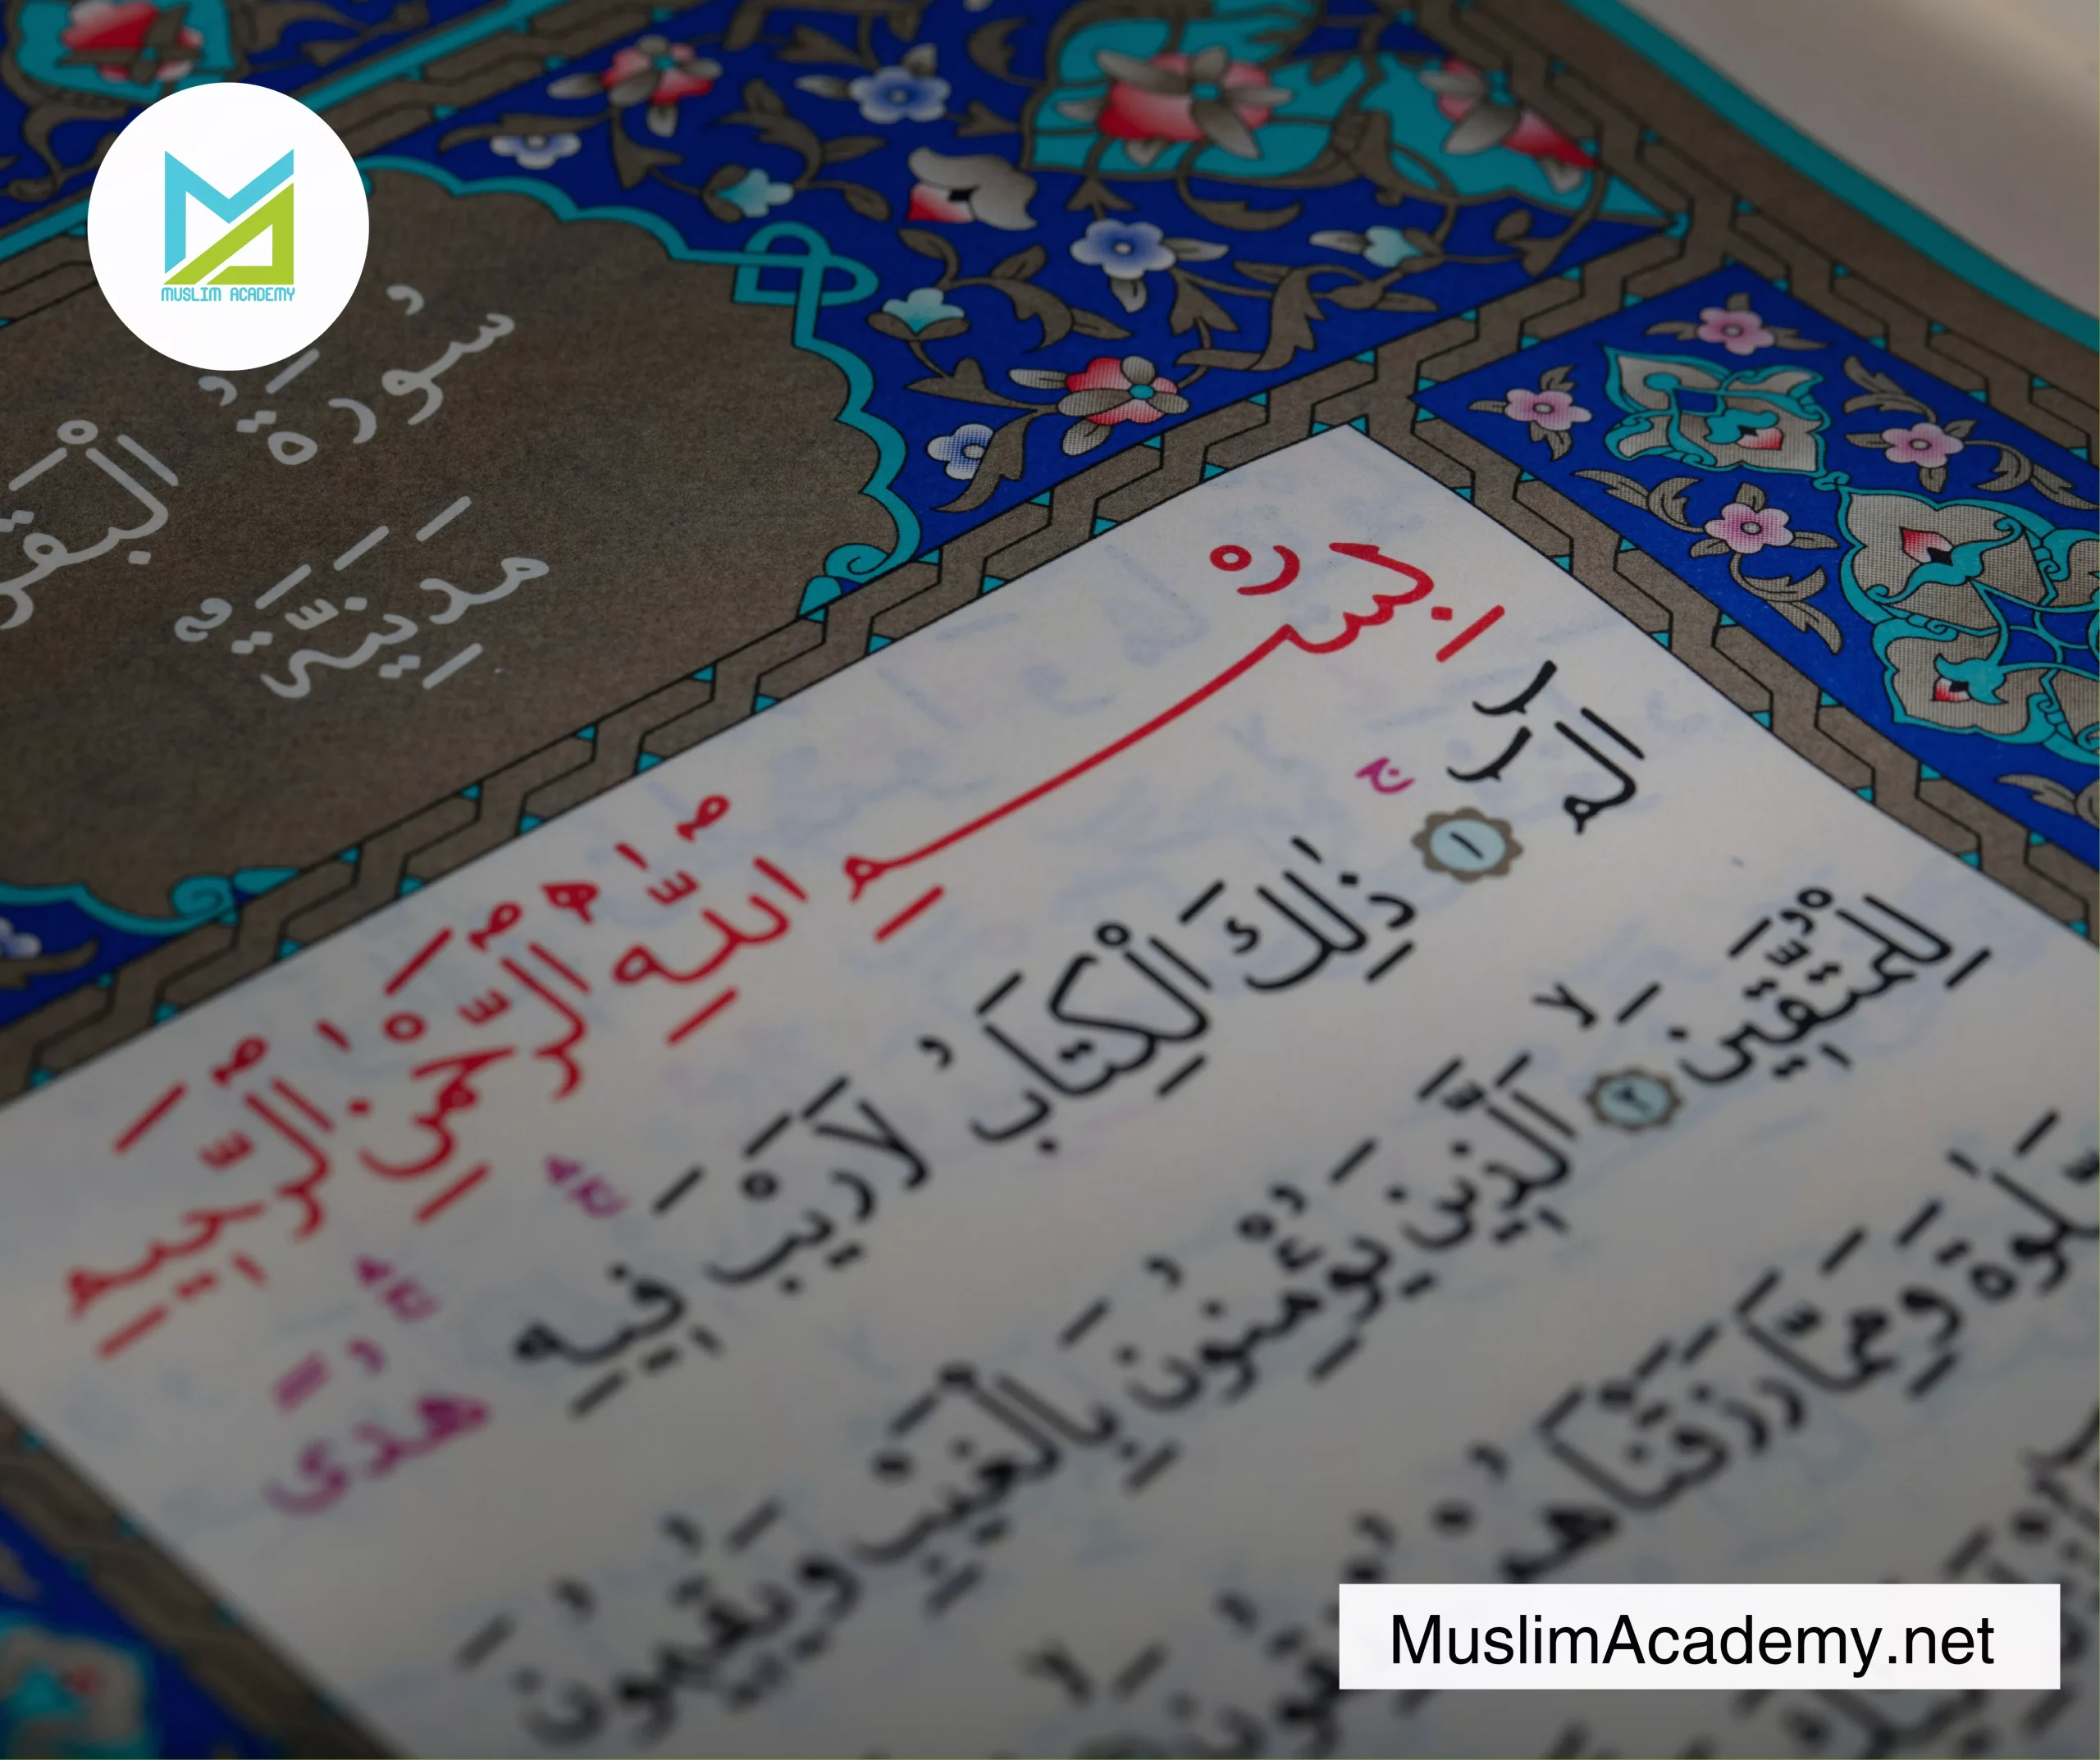 MUSLIM ACADEMY
سُورَةُ الْبَقَرَ
مَدَنِيَّةٌ
بِسْمِ اللّٰهِ الرَّحْمٰنِ الرَّحِيمِ
الٓمٓ ۚ ١ ذٰلِكَ الْكِتَابُ لَا رَيْبَ فِيهِ هُدًى
لِلْمُتَّقِينَ ٢ اَلَّذِينَ يُؤْمِنُونَ بِالْغَيْبِ وَيُقِيمُونَ
وَمِمَّا رَزَقْنَاهُمْ
MuslimAcademy.net